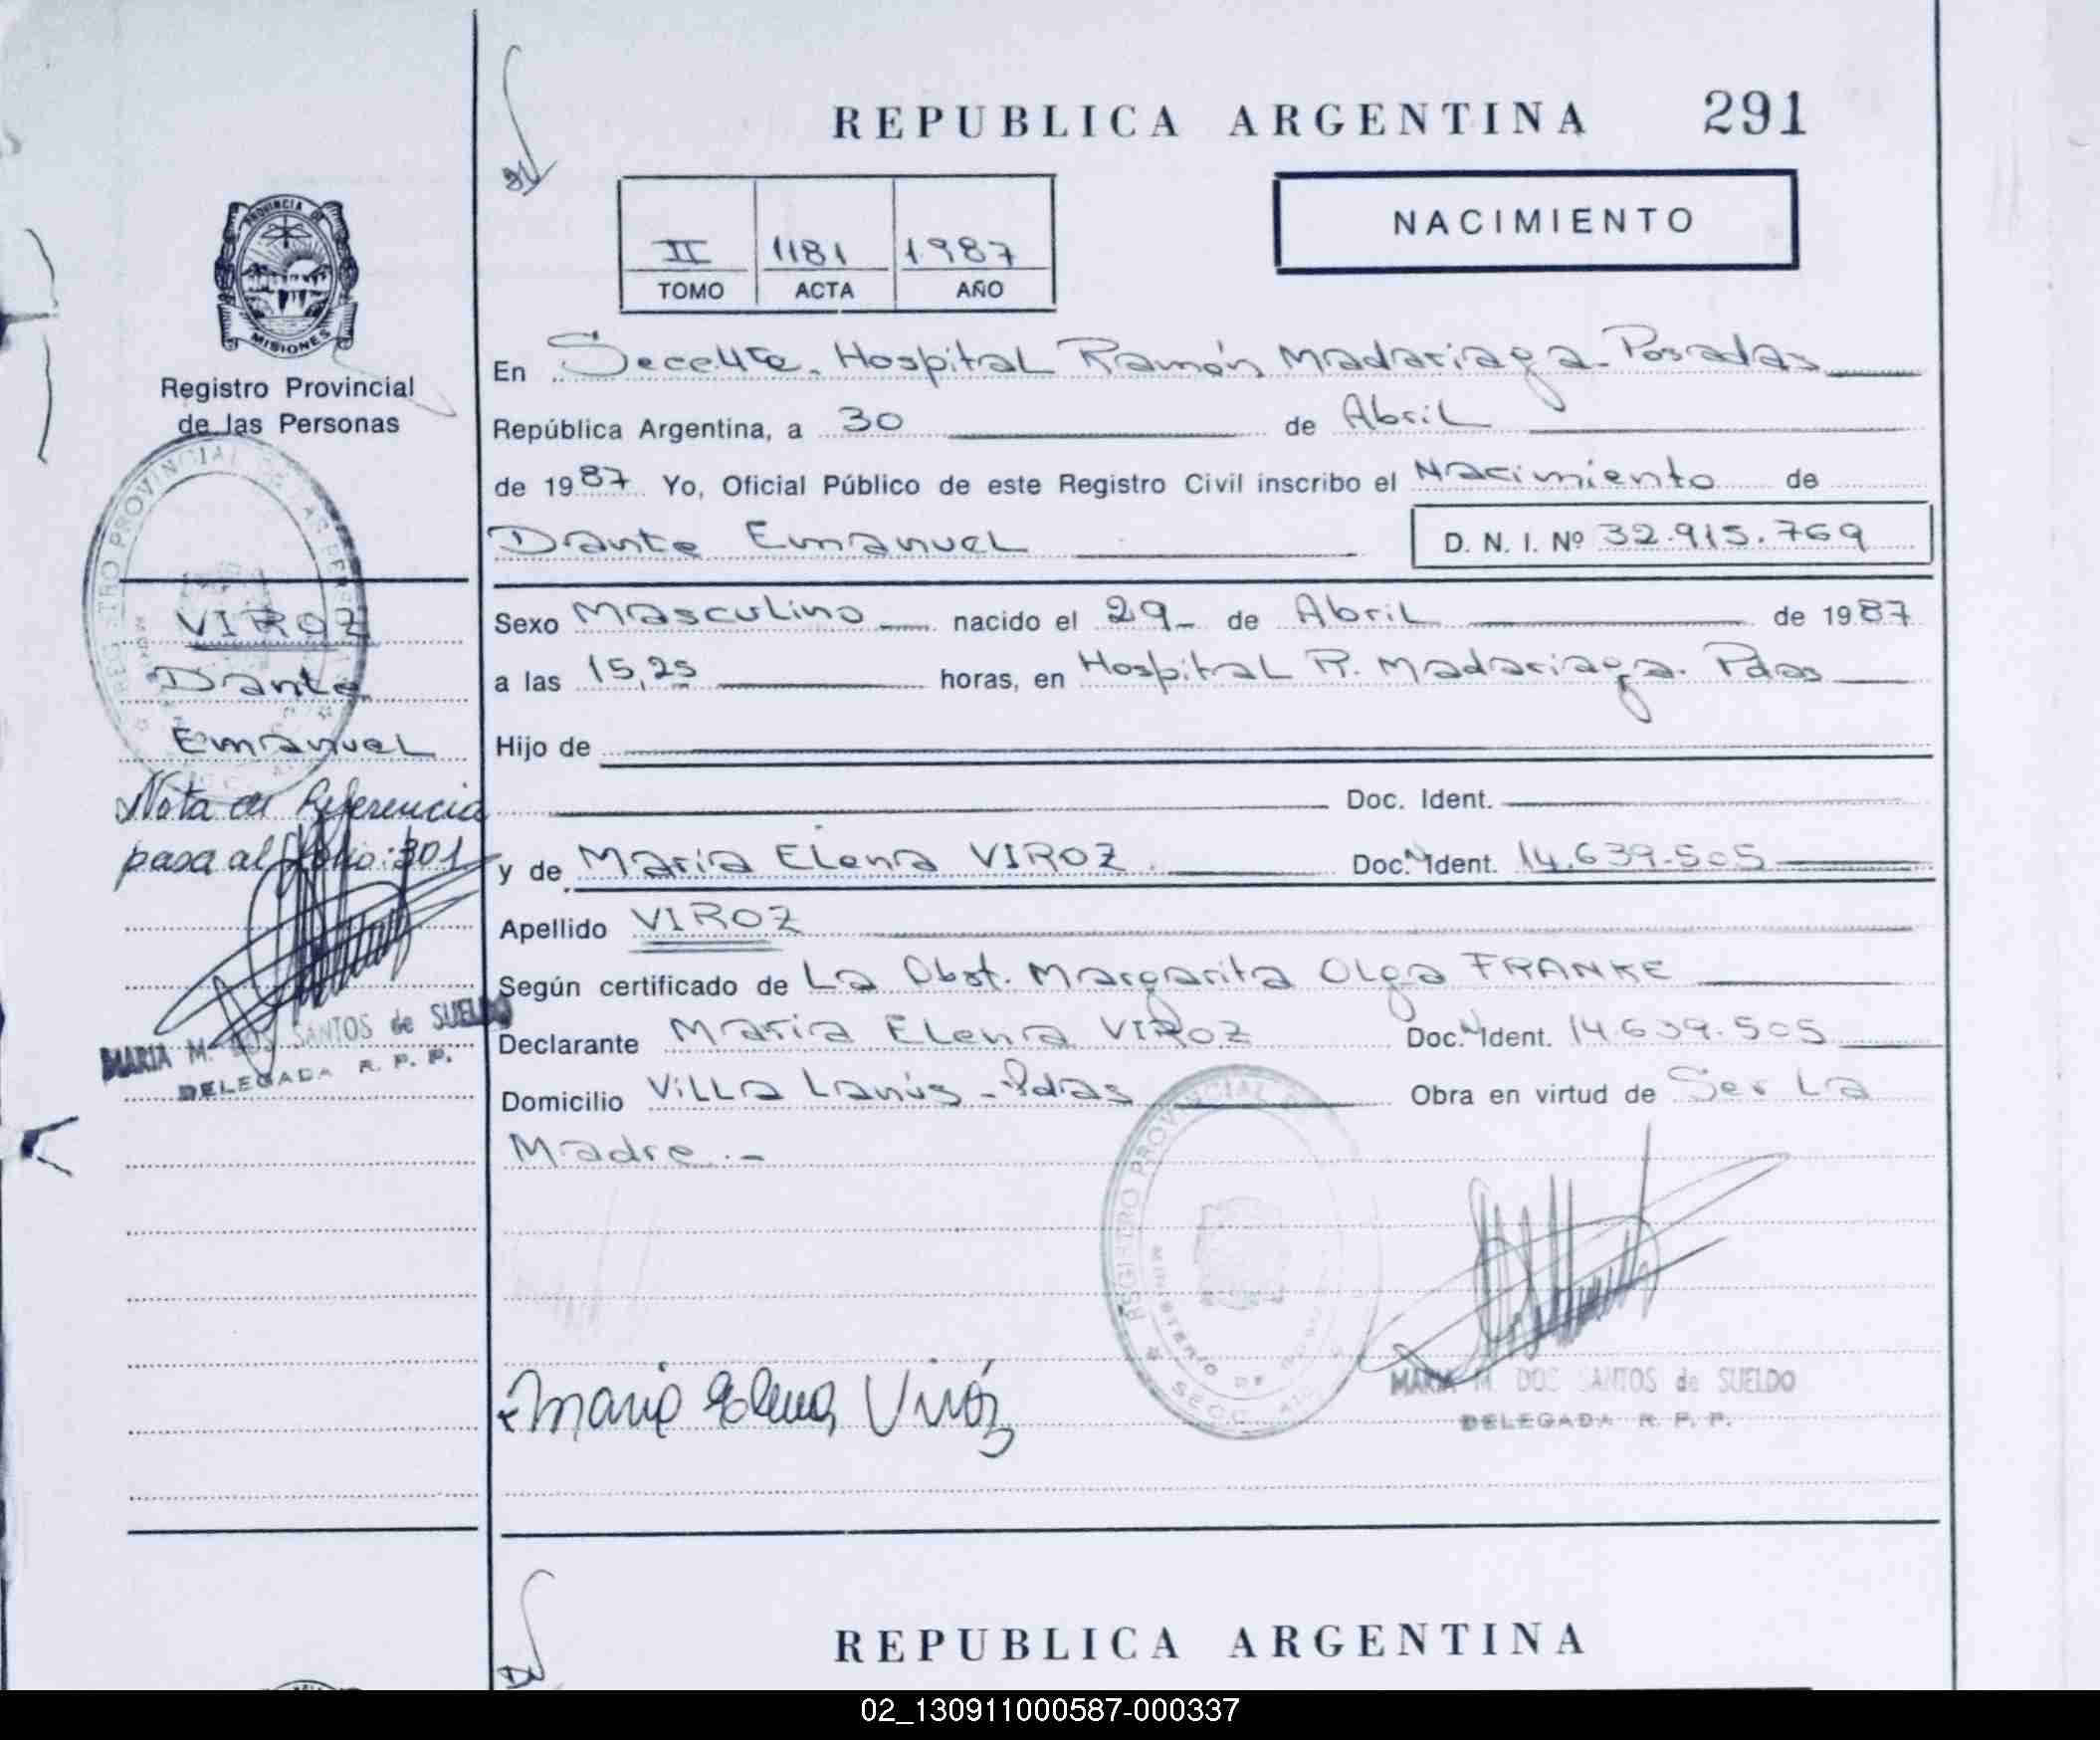 REPUBLICA ARGENTINA 291
NACIMIENTO
II 1181 1987
TOMO ACTA AÑO
PROVINCIA DE MISIONES
Registro Provincial
de las Personas
En Hospital Ramón Madariaga - Posadas
República Argentina, a 30 de Abril
de 1987 Yo, Oficial Público de este Registro Civil inscribo el Nacimiento de
Dante Emanuel D. N. I. Nº 32.915.769
VIROZ
Dante
Emanuel
Nota de Referencia
pasa al folio: 301
MARIA M. DOS SANTOS de SUELDO
DELEGADA R. P. P.
Sexo Masculino nacido el 29- de Abril de 1987
a las 15,25 horas, en Hospital R. Madariaga. Pdas
Hijo de
Doc. Ident.
y de Maria Elena VIROZ Doc. Ident. 14.639.505
Apellido VIROZ
Según certificado de La Obst. Margarita Olga FRANKE
Declarante Maria Elena VIROZ Doc. Ident. 14.639.505
Domicilio Villa Lanús - Pdas Obra en virtud de Ser La
Madre.-
REGISTRO PROVINCIAL
Maria Elena Viróz
MARIA M. DOS SANTOS de SUELDO
DELEGADA R. P. P.
REPUBLICA ARGENTINA
02_130911000587-000337